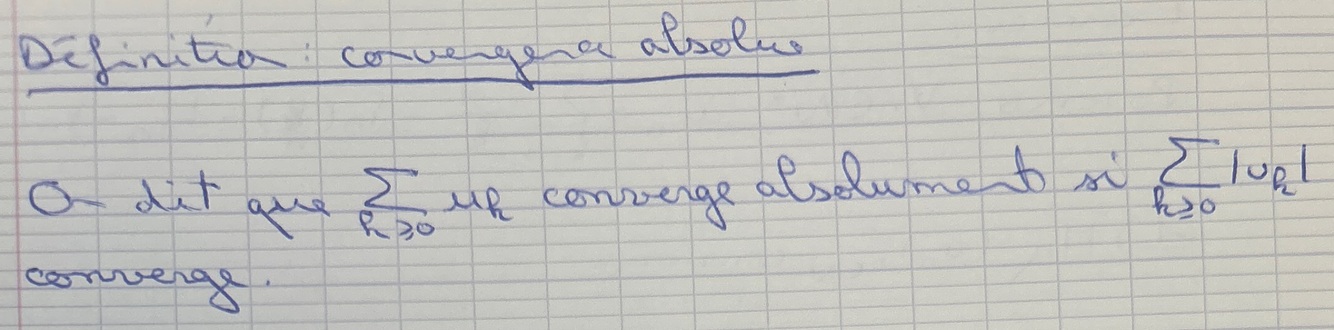 Définition : convergence absolue
On dit que ∑_{k≥0} u_k converge absolument si ∑_{k≥0} |u_k|
converge.